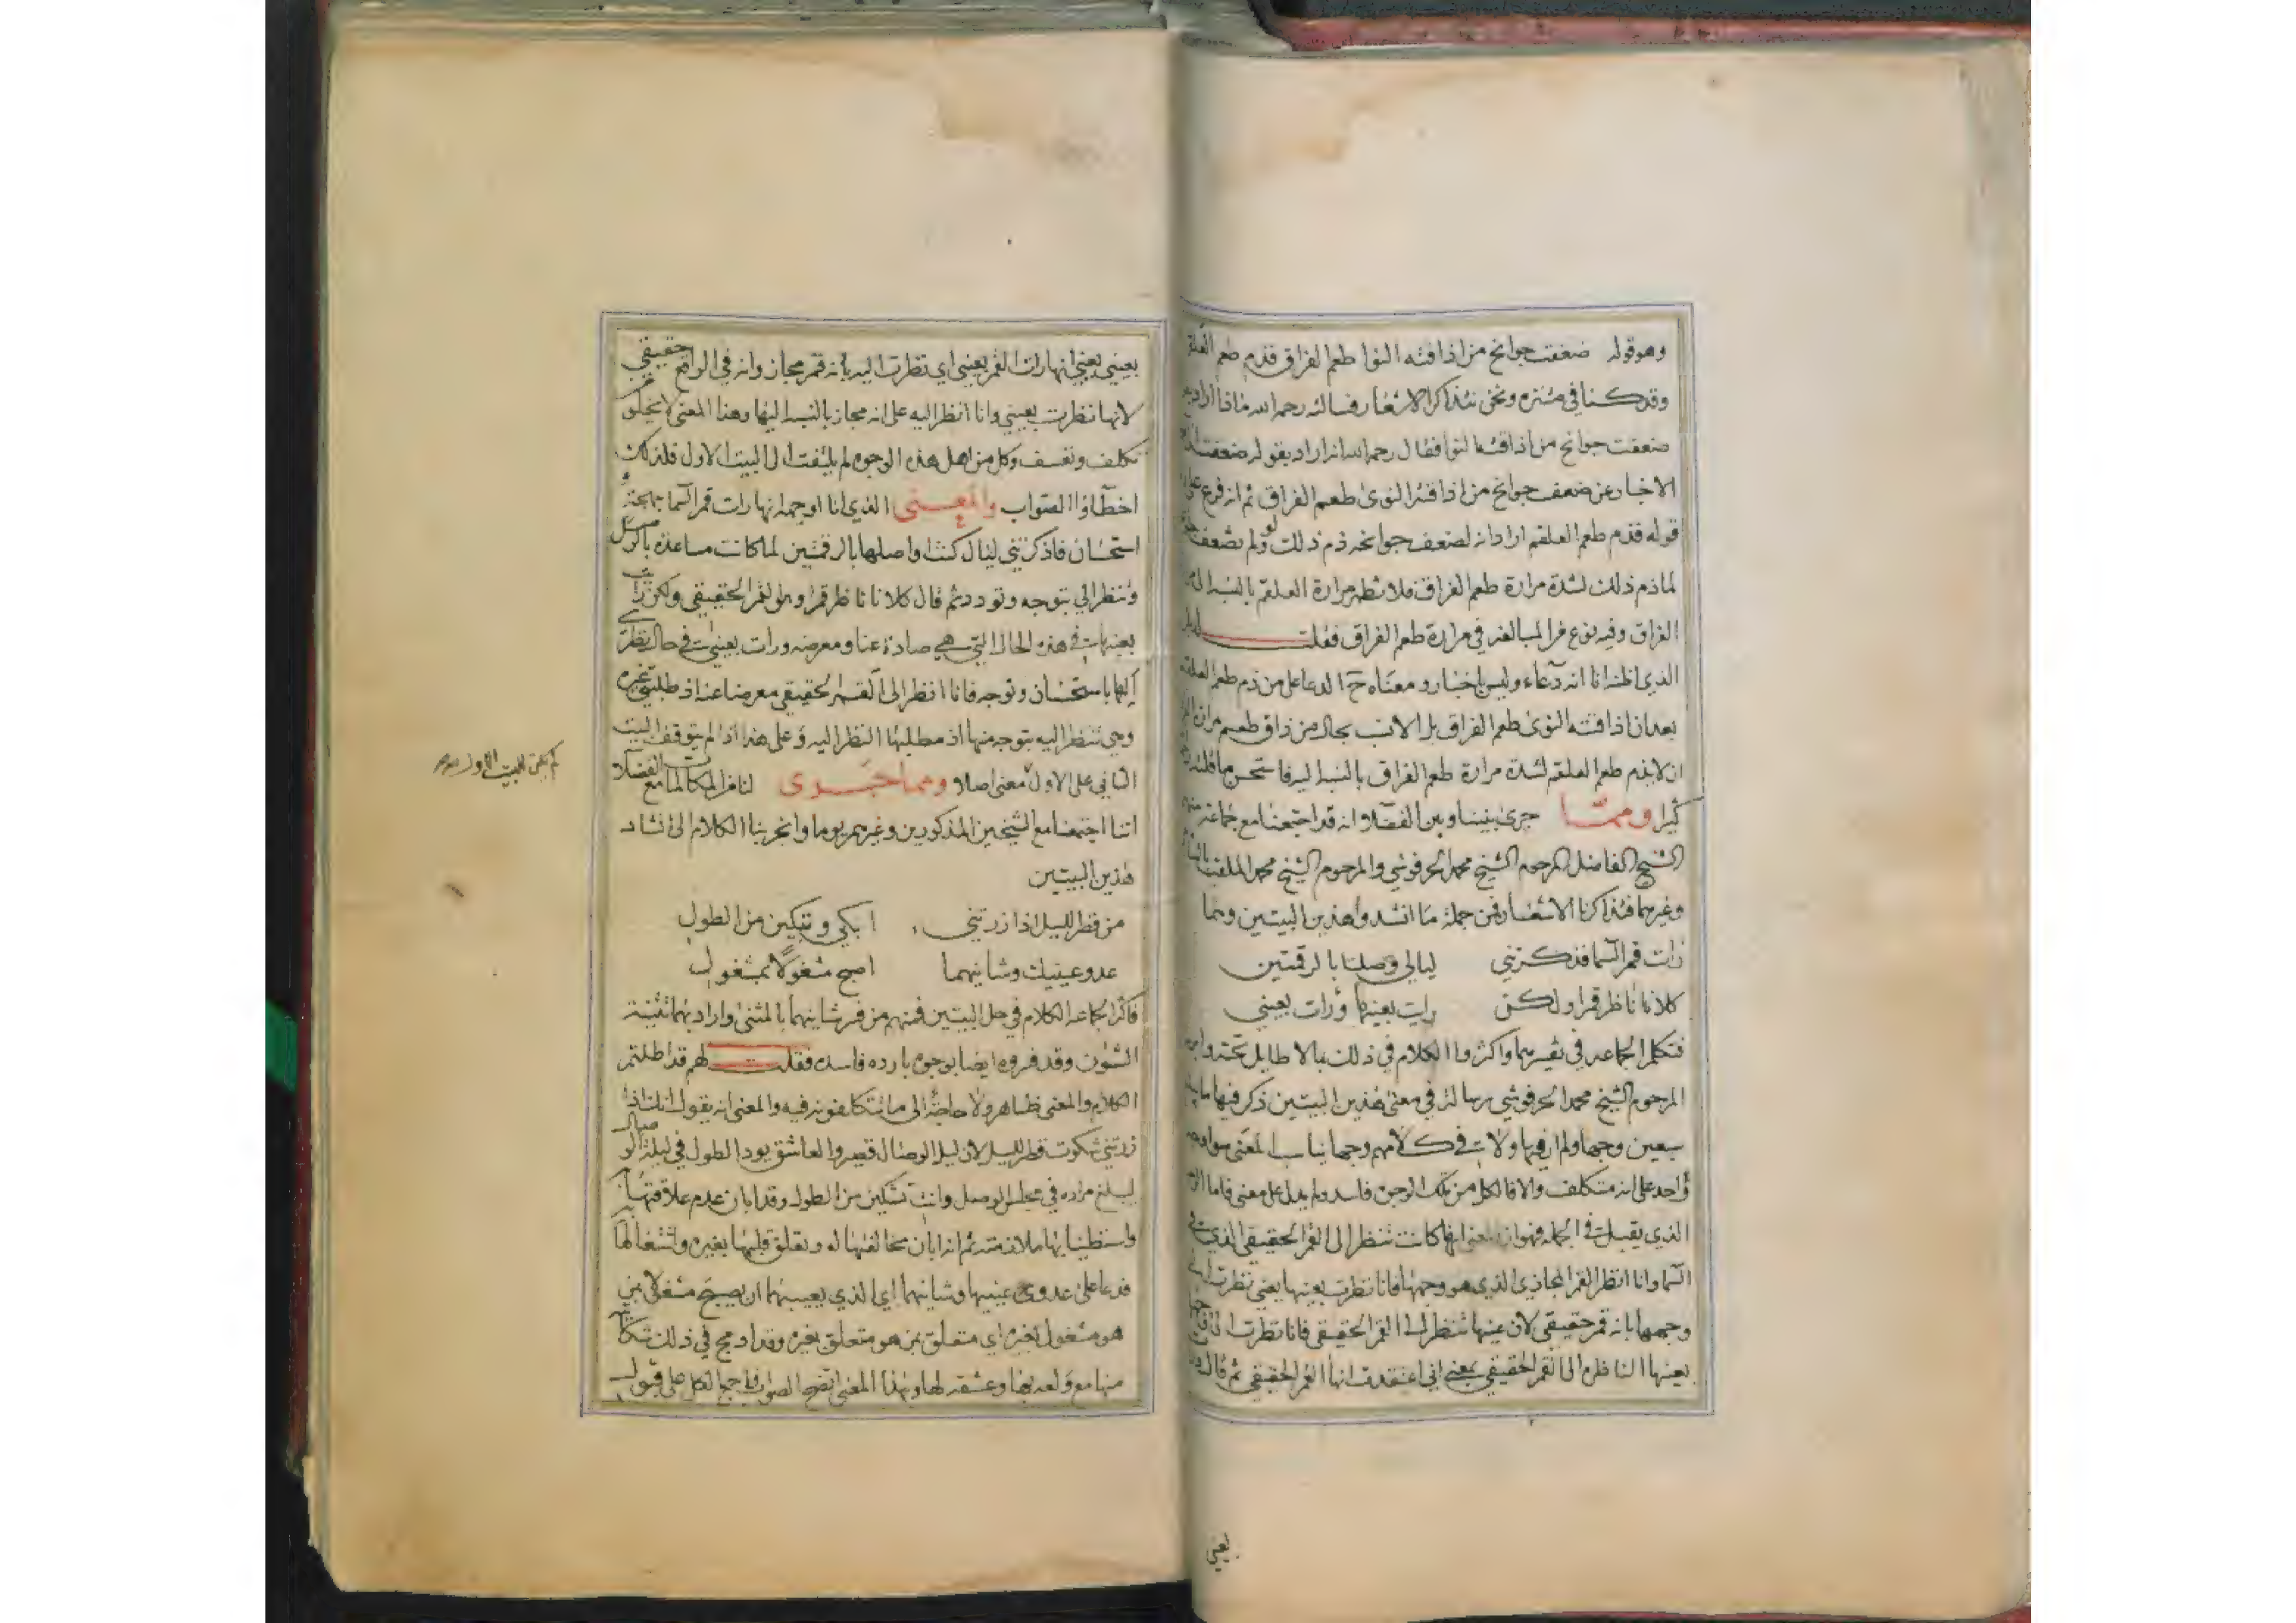 وهو قوله ضعفت جوانح من اذاقته النوا طعم الفراق فذم طعم العلقم
وقد كنا في منتزه ونحن نتذاكر الاشعار فسالته رحمه الله ماذا اراد بقوله
ضعفت جوانح من اذاقته النوا فقال رحمه الله انه اراد بقوله ضعفت
الاخبار عن ضعف جوانح من اذاقته النوى طعم الفراق ثم انه فرع على
قوله فذم طعم العلقم اراد انه لضعف جوانحه ذم ذلك ولو لم تضعف
لما ذم ذلك لشدة مرارة طعم الفراق فلا تظهر مرارة العلقم بالنسبة الى
الفراق وفيه نوع من المبالغة في مرارة طعم الفراق فقلت
الذي اظنه انا انه دعاء وليس باخبار ومعناه ح الدعا على من ذم طعم العلقم
بعد ان اذاقته النوى طعم الفراق بل الانسب بحال من ذاق طعم مرارة
ان لا يذم طعم العلقم لشدة مرارة طعم الفراق بالنسبة اليه فاستحسن ما قلته
كثيرا ومما جرى بيننا وبين الفضلاء انه قد اجتمعنا مع جماعة منهم
الشيخ الفاضل المرحوم الشيخ محمد الحرفوشي والمرحوم الشيخ محمد الملقب
وغيرهما فتذاكرنا الاشعار فمن جملة ما انشدوا هذين البيتين وهما
رات قمر السما فذكرتني ليالي وصلنا بالرقمتين
كلانا ناظر قمرا ولكن رايت بعينها ورات بعيني
فتكلم الجماعه في تفسيرهما واكثروا الكلام في ذلك بما لا طايل تحته
المرحوم الشيخ محمد الحرفوشي رسالة في معنى هذين البيتين ذكر فيها ما
سبعين وجها ولم ار فيها ولا في كلامهم وجها يناسب المعنى سوا وجه
واحد على انه متكلف والا فالكل من تلك الوجوه فاسد ولم يدل على معنى فاما
الذي يقبل في الجمله فهو انها كانت تنظر الى القمر الحقيقي الذي في
السما وانا انظر القمر المجازي الذي هو وجهها فانا نظرت بعينها يعني نظرت
وجهها بانه قمر حقيقي لان عينها تنظر الى القمر الحقيقي فانا نظرت الى
بعينها الناظرة الى القمر الحقيقي بمعنى اني اعتقدت انها القمر الحقيقي ثم قال
يعني
بعيني يعني انها رات القمر بعيني اي نظرت اليه بانه قمر مجاز وانه في الواقع حقيقي
لانها نظرت بعيني وانا انظر اليه على انه مجاز بالنسبة اليها وهذا المعنى لا يخلو
تكلف وتعسف وكل من اهل هذه الوجوه لم يلتفت الى البيت الاول فلذلك
اخطاؤا الصواب والمعنى الذي انا اوجهه انها رات قمر السما بهجة
استحسان فاذكرتني ليال كنت اواصلها بالرقمتين لما كانت مساعدة
وتنظر الي بتوجه وتودد ثم قال كلانا ناظر قمرا وهو القمر الحقيقي ولكن رايت
بعينها في هذه الحال التي هي صادة عنا ومعرضه ورات بعيني في حال نظرت
اليها باستحسان وتوجه فانا انظر الى القمر الحقيقي معرضا عنه اذ طلبتي غيره
وهي تنظر اليه بتوجه منها اذ مطلبها النظر اليه وعلى هذا اذا لم يتوقف البيت
الثاني على الاول معنى اصلا ومما جرى لنا من المكالمات مع الفضلا
لم يكن للبيت الاول
اننا اجتمعنا مع الشيخين المذكورين وغيرهم يوما وانجر بنا الكلام الى انشاد
هذين البيتين
من قصر الليل اذا زرتني ابكي وتبكين من الطول
عدو عينيك وشانيهما اصبح مشغولا بمشغول
فاكثر الجماعه الكلام في حل البيتين فمنهم من فسر شانيهما بالمثنى واراد بهما تثنية
الشؤن وقد فسروه ايضا بوجوه بارده فاسده فقلت لهم قد اطلتم
الكلام والمعنى ظاهر ولا حاجة الى ما تتكلفونه فيه والمعنى انه يقول انك اذا
زرتني شكوت قصر الليل لان ليل الوصال قصير والعاشق يود الطول في ليلة الوصال
ليبلغ مراده في مجلس الوصل وانت تشكين من الطول وقد ابان عدم علاقتها به
واستطنابها ملازمته ثم انه ابان مخالفتها له وتعلق قلبها بغيره واشتغالها
فدعا على عدوي عينيها وشانيهما اي الذي يعيبهما ان يصبح مشغولا بمن
هو مشغول بغيره اي متعلق بمن هو متعلق بغيره وقد ادمج في ذلك
منها مع ولعه بها وعشقه لها وبهذا المعنى اتضح الصواب فاجمع الكل على قبول